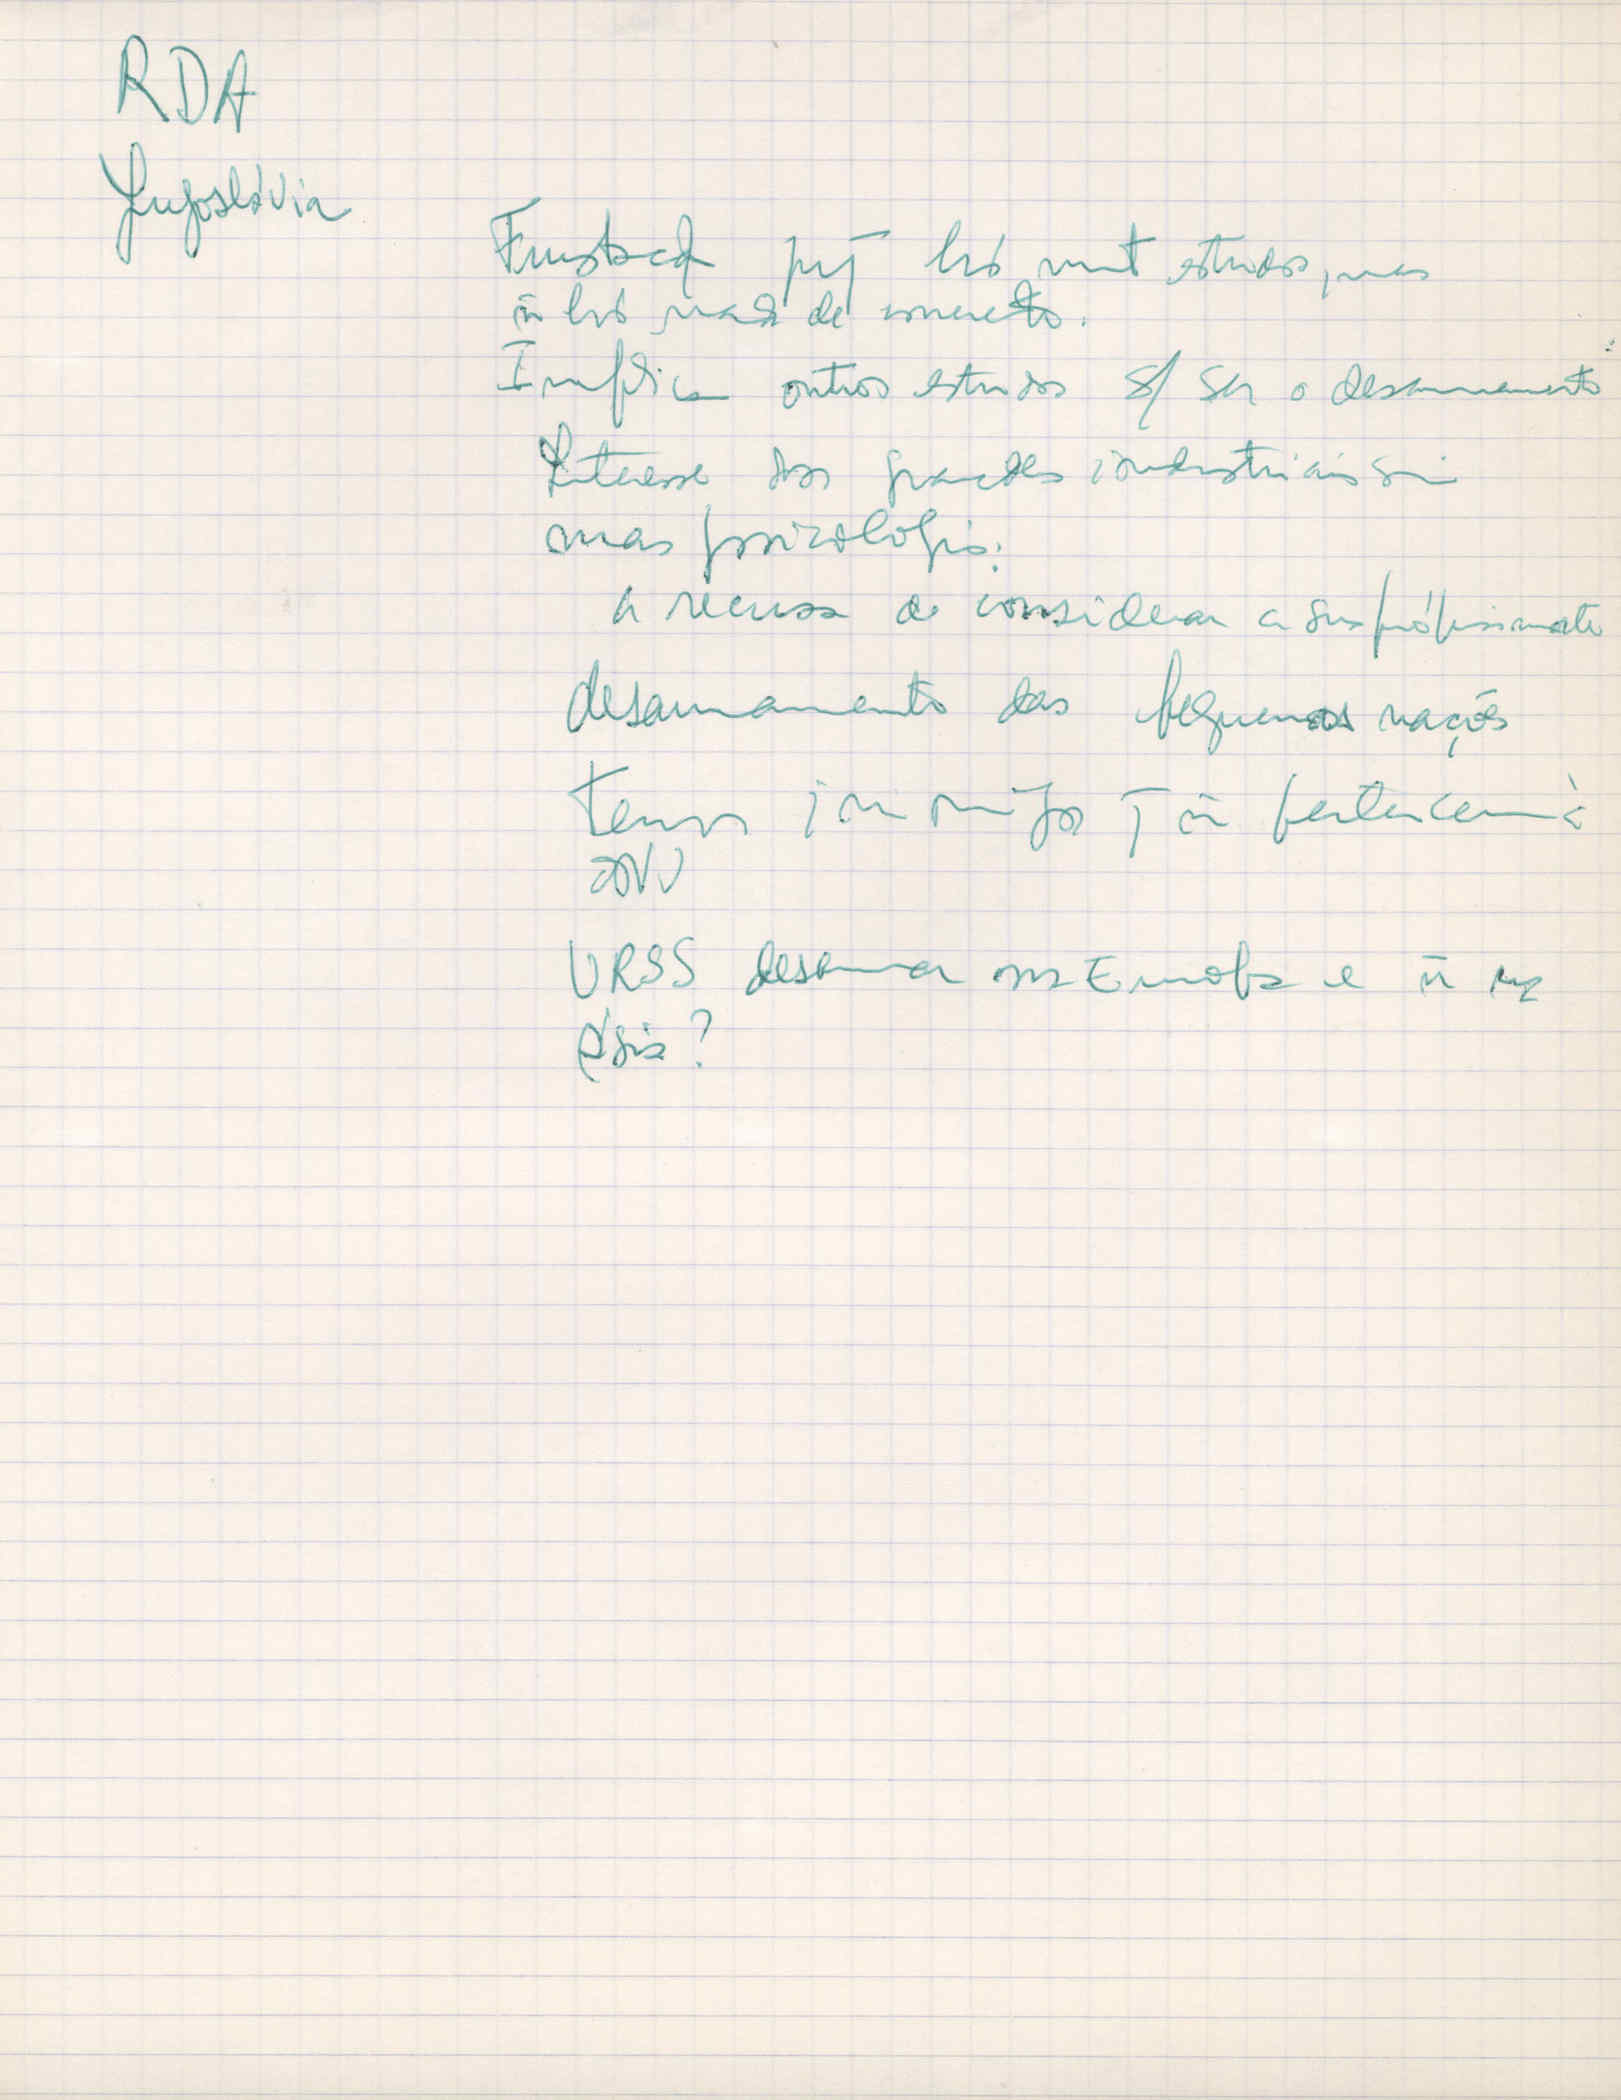 RDA
Jugoslávia
Frustrad pq há mt estudos, mas
ñ há nada de concreto.
Implica outros estudos s/ ser o desarmamento
Interesse dos grandes industriais sim
mas psicologia:
a recusa de considerar a sua própria morte
desarmamento das pequenas nações
temos inimigos q ñ pertencem à
ONU
URSS desarmar na Europa e ñ na
Ásia?